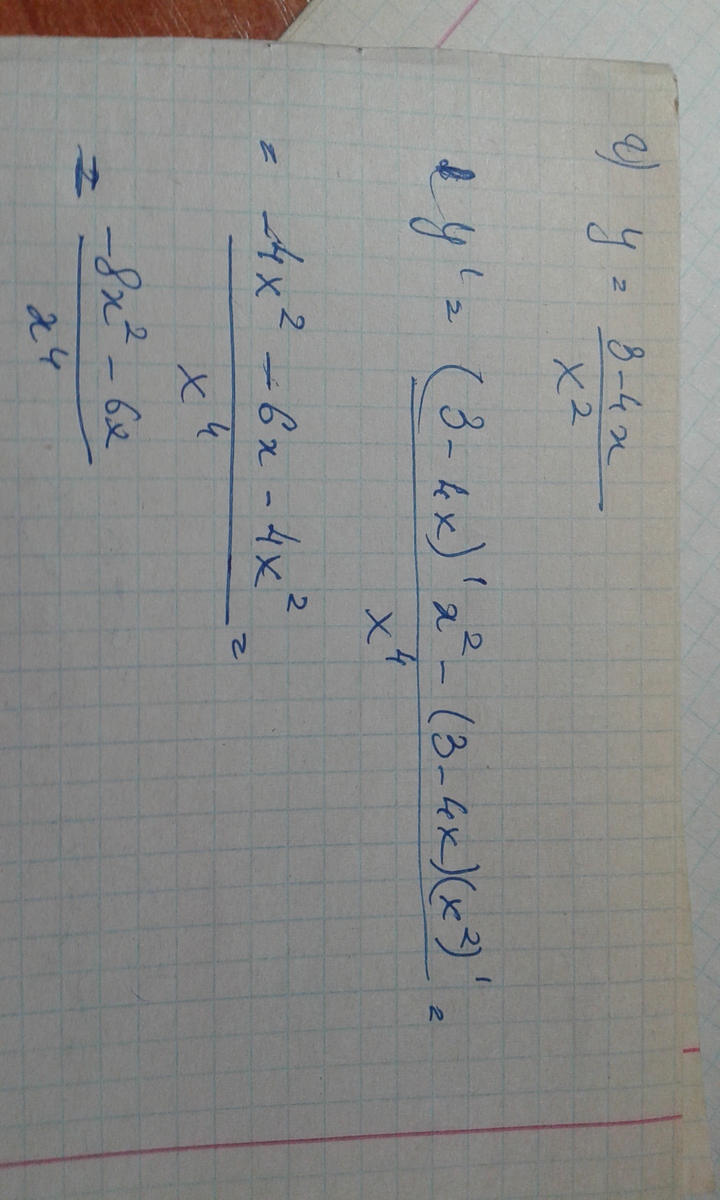 г) y = 3-4x / x²
y' = (3-4x)' x² - (3-4x)(x²)' / x⁴ =
= -4x² - 6x - 4x² / x⁴ =
= -8x² - 6x / x⁴